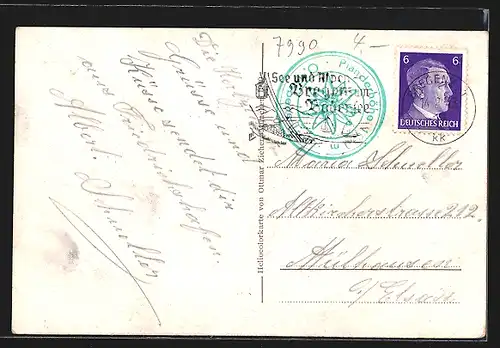 7990 4.-
Die
Grüsse und
Küsse sendet dir
aus Friedrichshafen
Albert. Schmeller
See und Alpen
Bregenz am
Bodensee
6 6
DEUTSCHES REICH
BREGENZ
KK
Heliocolorkarte von Ottmar Zieher
Maria Schmeller
Altkircherstrasse 292.
Mülhausen
i/ Elsass